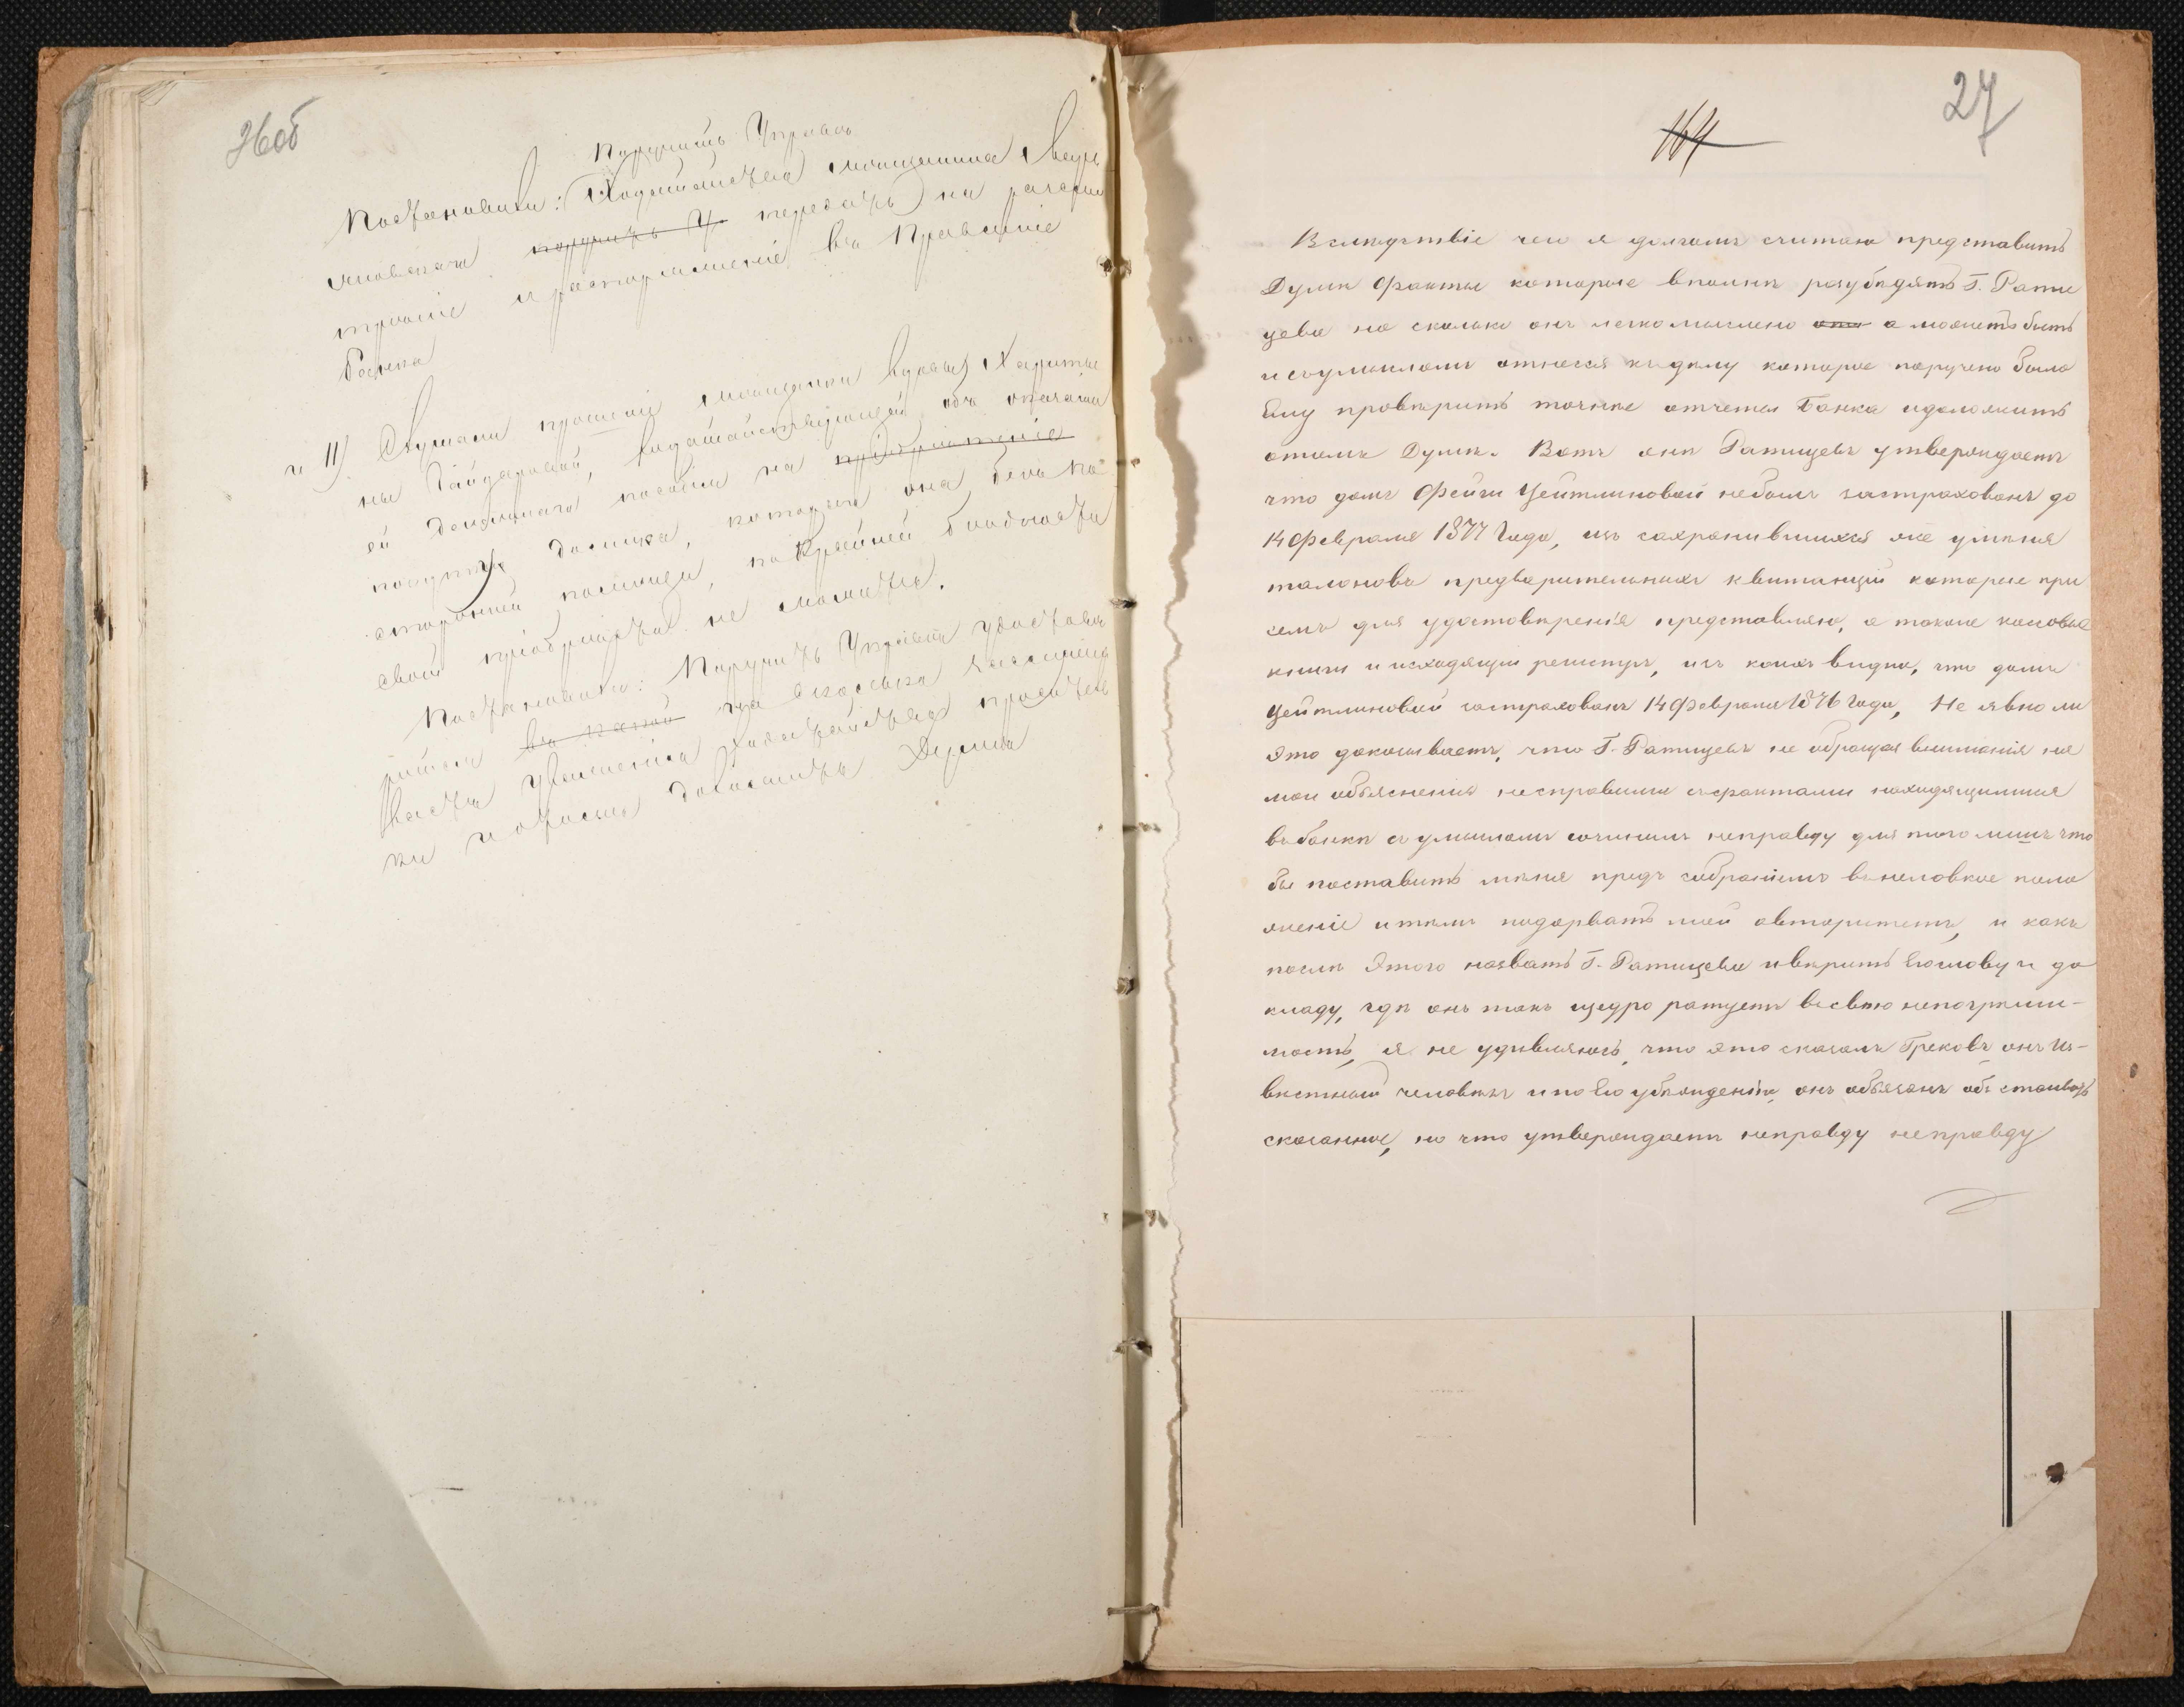 26об
Поручить Управѣ
Постановили: Ходатайства мѣщанина
поручить У передать) на разсмо
трѣніе и распоряженіе въ Правленіе
Банка
и 11) Слушали прошеніе мѣщанки Хари
ны Гайдаровой, ходатайствующей объ оказаніи
ей денежнаго пособія на пріобрѣтеніе
покупку домика, котораго она безъ по
сторонней помощи, по крайней бѣдности
своей пріобрѣсти не можетъ.
Постановили: Поручить Управѣ удостовѣ
риться въ какой на сколько заслужи
ваетъ уваженія ходатайство проситель
ки и о томъ доложить Думѣ
27
164
Вслѣдствіе чего я долгомъ считаю представить
Думѣ факты которые вполнѣ разубѣдятъ Г. Рати
щева на сколько онъ легкомысленно а можетъ быть
и съ умысломъ отнесся къ дѣлу которое поручено было
Ему провѣрить точнѣе отчеты Банка и доложить
о томъ Думѣ. Вотъ онъ Ратищевъ утверждаетъ
что домъ Фейги Цейтлиновой небылъ застрахованъ до
14 февраля 1877 Года, изъ сохранившихся же уменя
талоновъ предварительныхъ квитанцій которые при
семъ для удостовѣренія представляю, а также кассовые
книги и исходящій реистръ, изъ коихъ видно, что домъ
Цейтлиновой застрахованъ 14 февраля 1876 Года, Не явно ли
это доказываетъ, что Г. Ратищевъ не обращая вниманія на
мои объясненія несправимы съ фактами находящимися
въ банкѣ съ умысломъ сочинилъ неправду для того лишь что
бы поставить меня предъ собраніемъ въ неловкое поло
женіе и тѣмъ подорвать мой авторитетъ, и какъ
послѣ этого назвать Г. Ратищева и вѣрить Его слову и до
кладу, гдѣ онъ такъ щедро ратуетъ всвою непогрѣши-
мость, я не удивляюсь, что это сказалъ Грековъ онъ Из-
вѣстный человѣкъ и по Его убѣжденію, онъ обязанъ отстоивать
сказанное, но что утверждаетъ неправду неправду